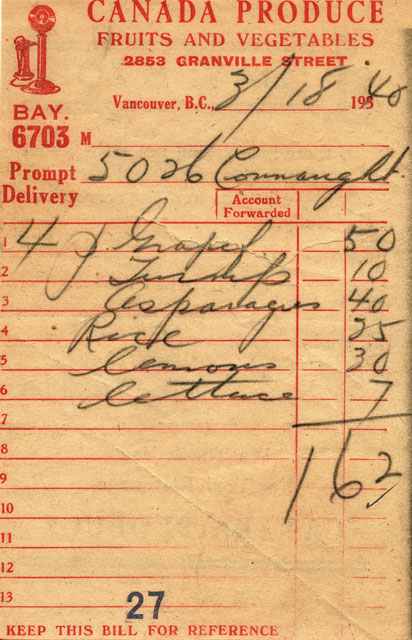 CANADA PRODUCE
FRUITS AND VEGETABLES
2853 GRANVILLE STREET
BAY.
6703
Vancouver, B.C., 3/18 193 40
M
Prompt Delivery
5026 Connaught.
Account Forwarded
1 4 Grapef 50
2 Turnips 10
3 Asparagus 40
4 Rice 25
5 lemons 30
6 lettuce 7
7
8 162
9
10
11
12
13
27
KEEP THIS BILL FOR REFERENCE